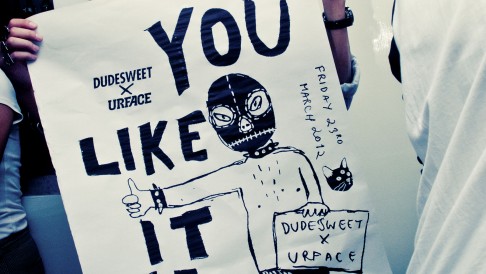 YOU
DUDESWEET
X
URFACE
FRIDAY 23RD
MARCH 2012
LIKE
IT
DUDESWEET
X
URFACE